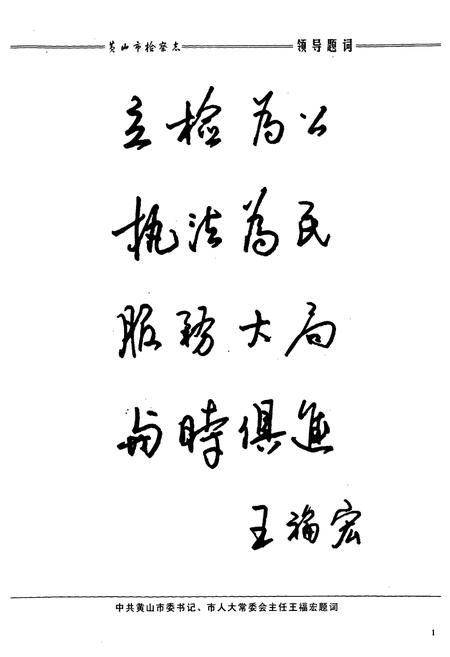 黄山市检察志
领导题词
立检为公
执法为民
服务大局
与时俱進
王福宏
中共黄山市委书记、市人大常委会主任王福宏题词
1